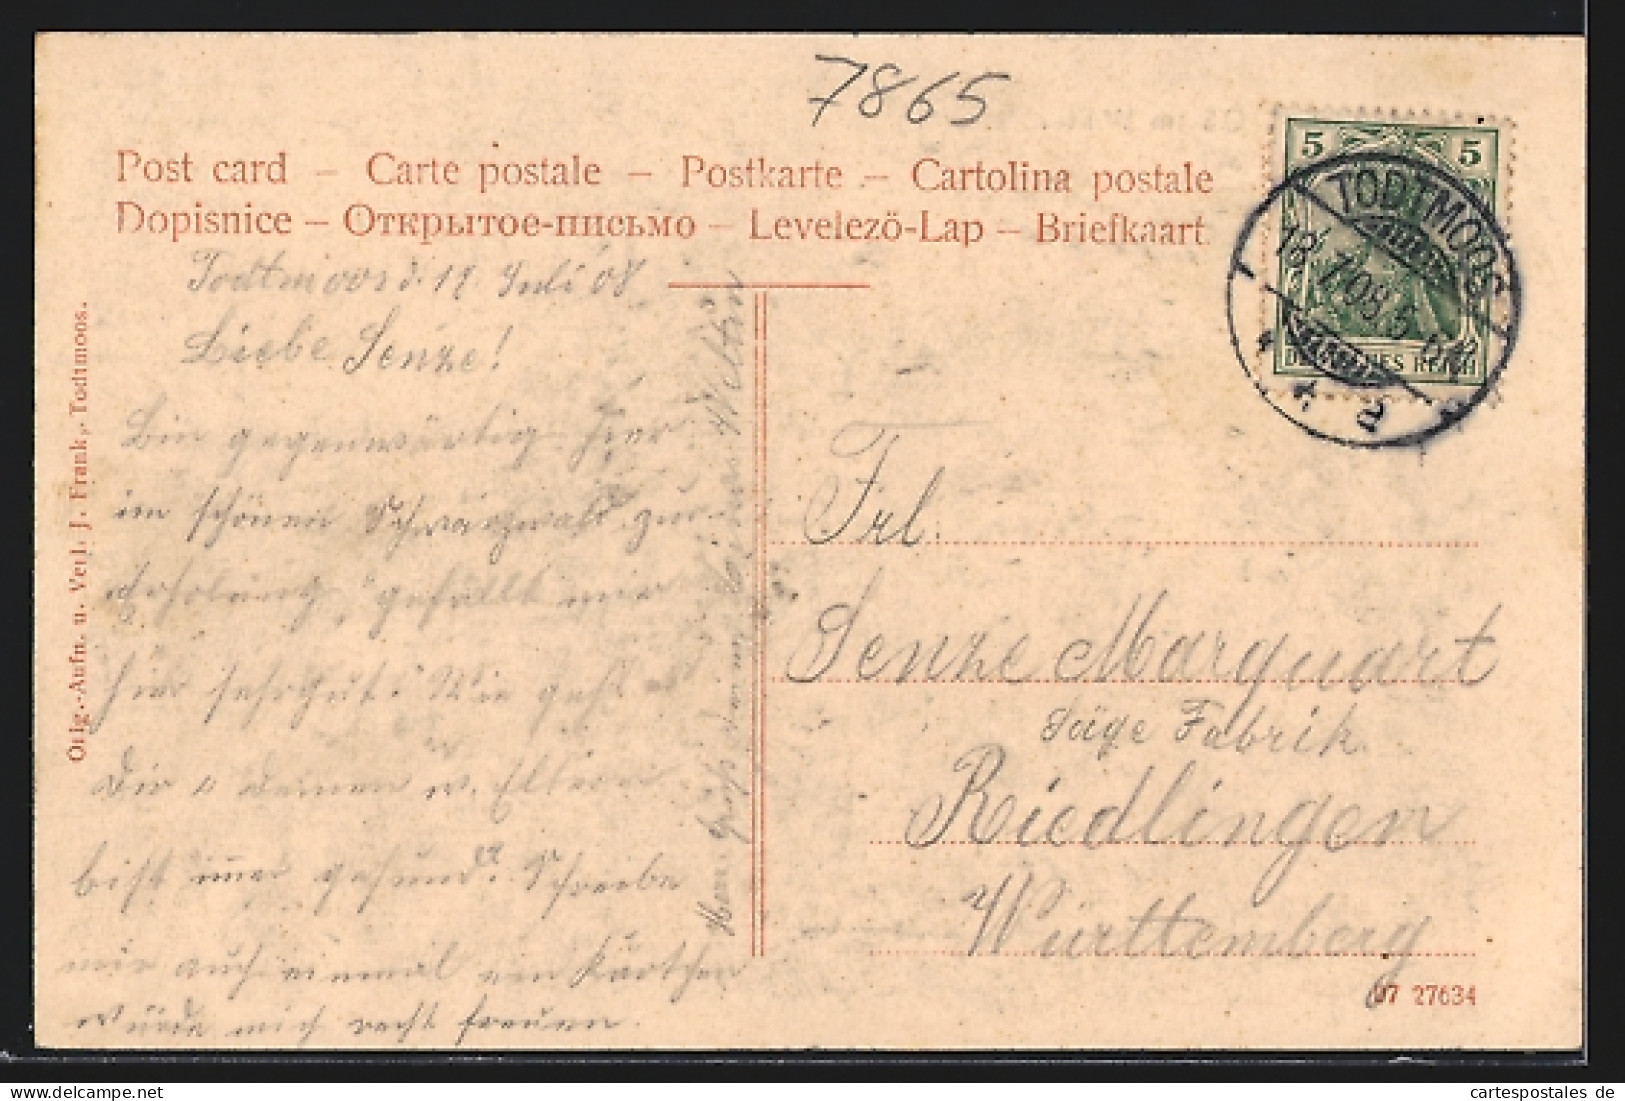 7865
Post card – Carte postale – Postkarte – Cartolina postale
Dopisnice – Открытое-письмо – Levelezö-Lap – Briefkaart
5 5
DEUTSCHES REICH
TODTMOOS
18.7.08.5-6N.
Todtmoos d. 17. Juli 08
Liebe Senze!
Bin gegenwärtig hier
im schönen Schwarzwald zur
Erholung, gefällt mir
hier sehr gut. Wie geht es
Dir u Deinen w. Eltern
bist immer gesund? Schreibe
mir auch einmal ein Kärtchen
würde mich recht freuen.
Frl.
Senze Marquart
Säge Fabrik
Riedlingen
Württemberg
Orig.-Aufn. u. Verl. J. Frank, Todtmoos.
07 27634
cartespostales.de